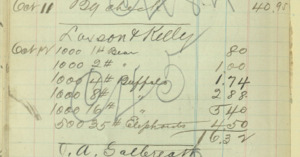 Oct 11 By check 40.95
Lawson & Kelly
Oct 14 1000 1# Bear 80
1000 2# " 1.00
1000 4# Buffalo 1.74
1000 8# " 2.88
1000 16# " 5.40
500 35# Elephants 4.50
16.32
T. A. Galbreath